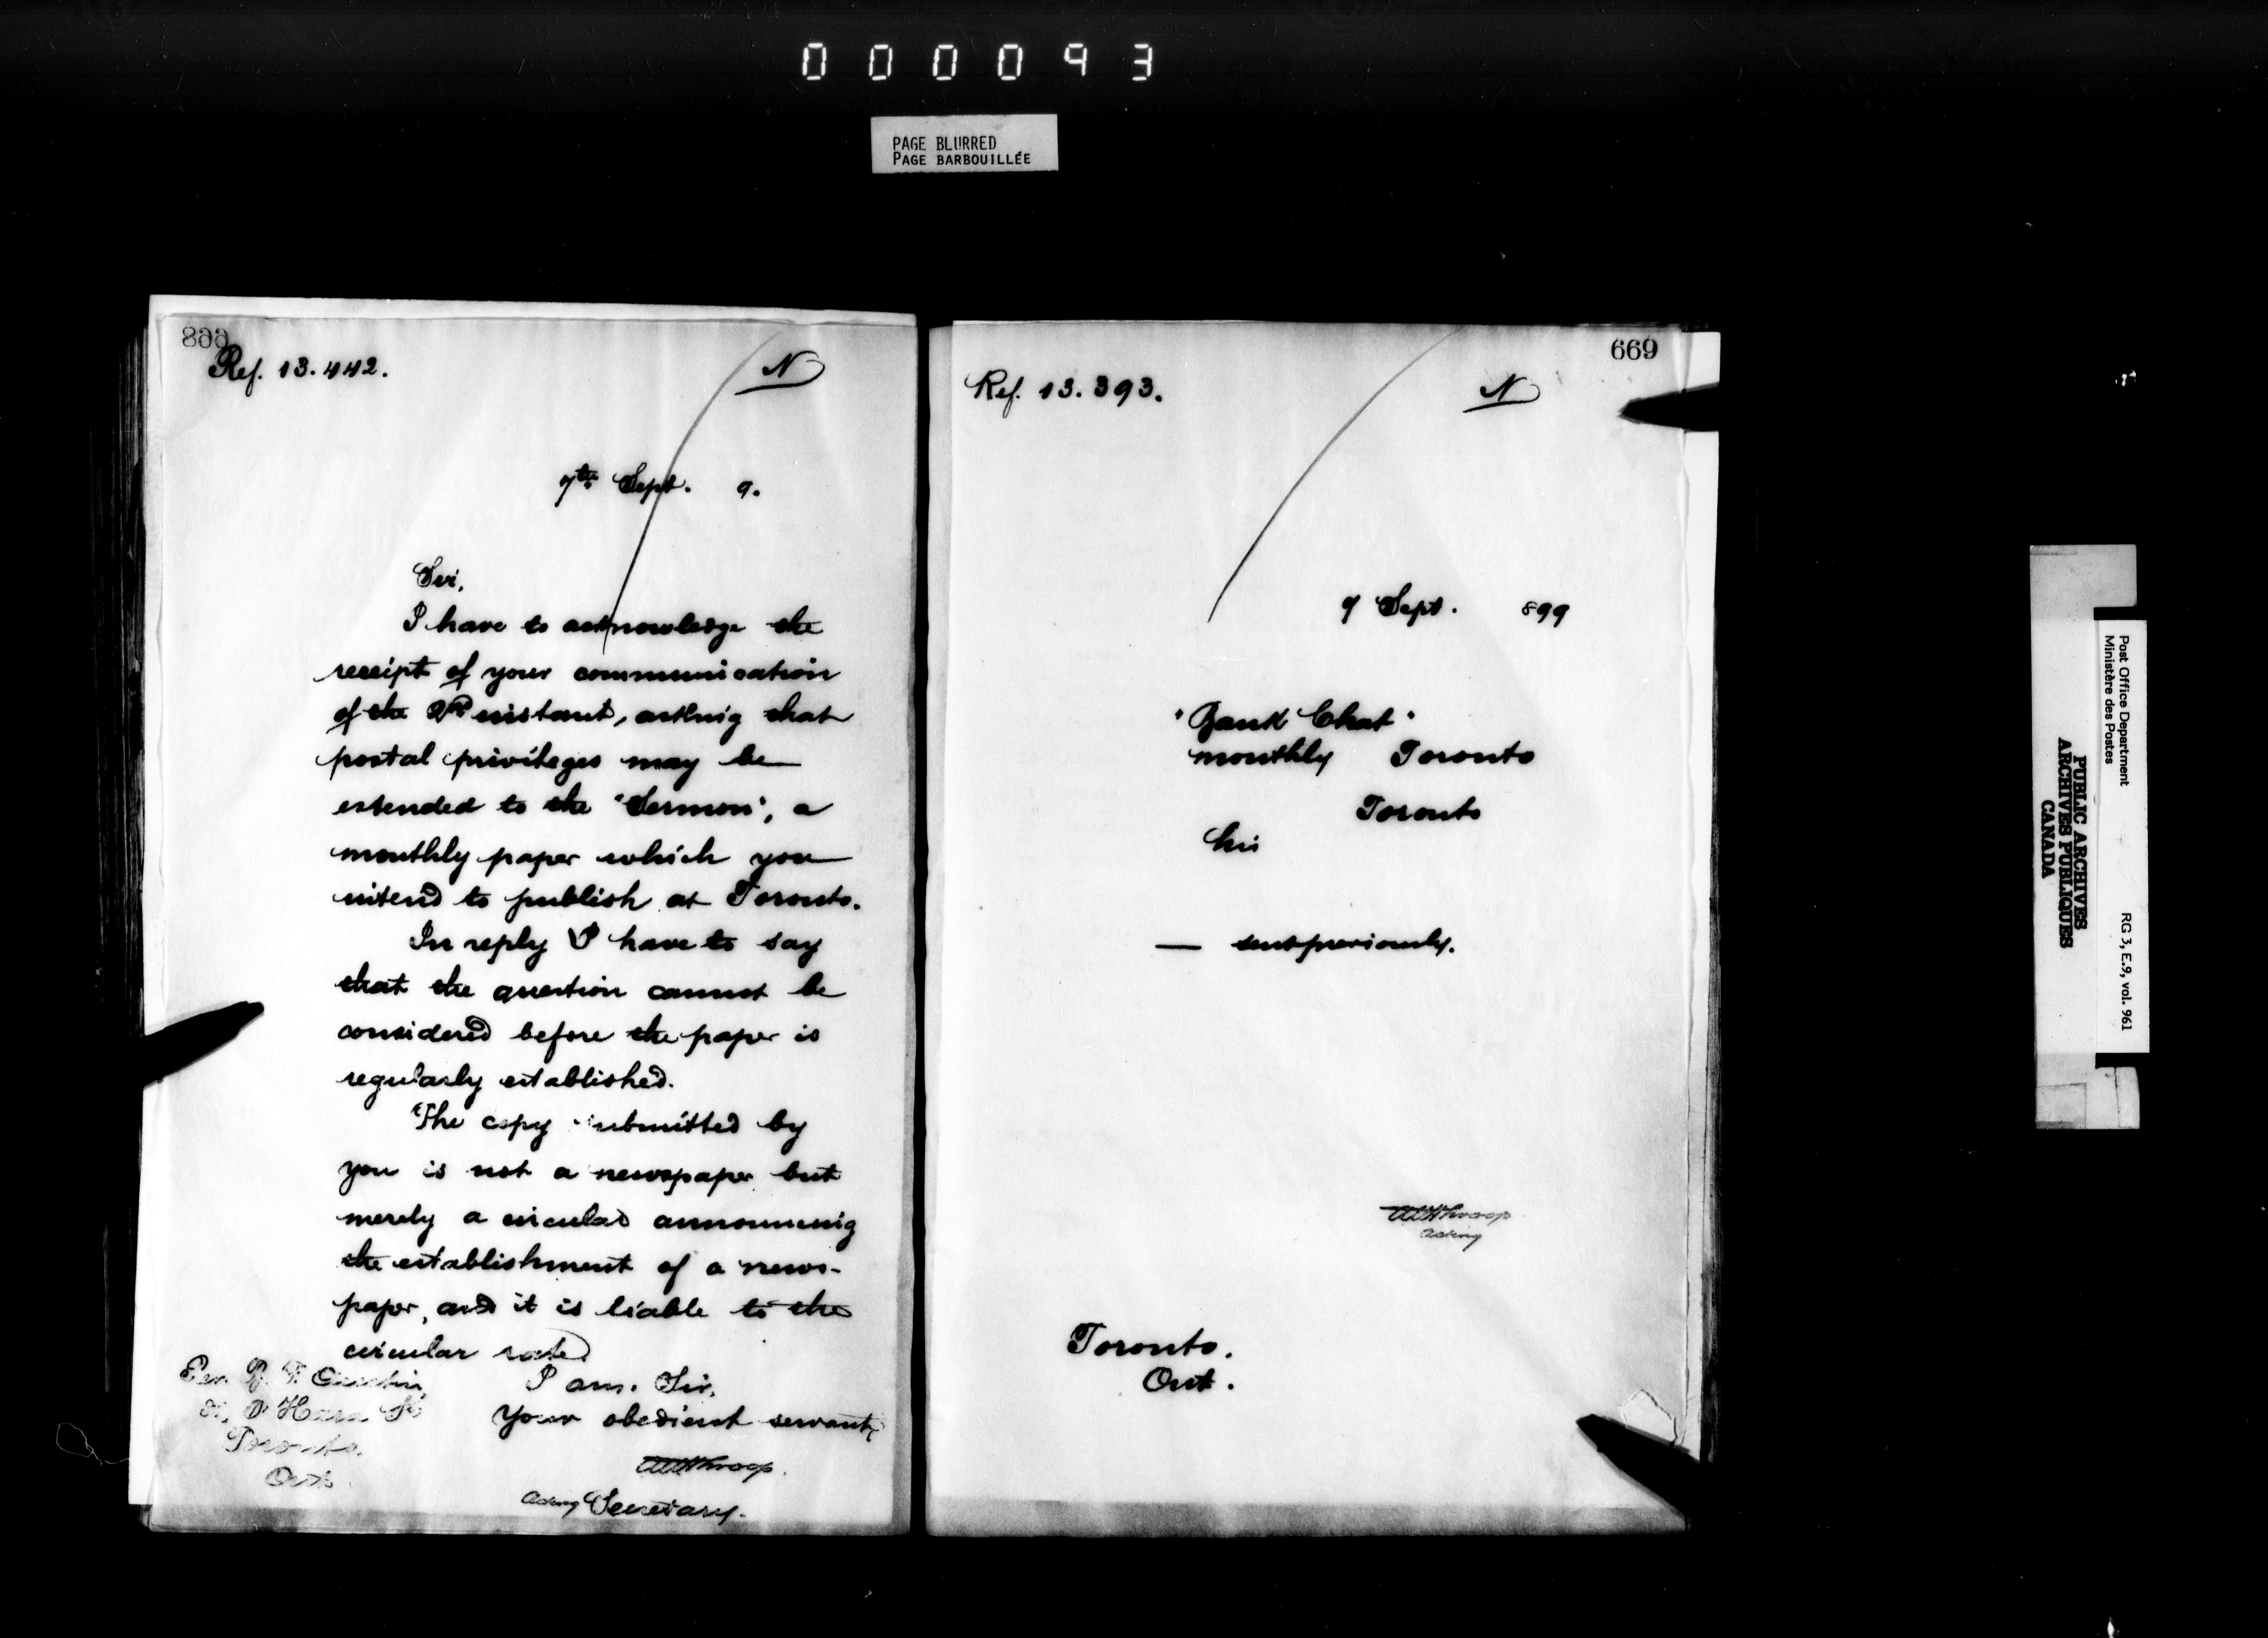 000093
PAGE BLURRED
PAGE BARBOUILLÉE
668
Ref. 13.442.
N
7th Sept. 9.
Sir,
I have to acknowledge the
receipt of your communication
of the instant, asking that
postal privileges may be
extended to the "Sermon", a
monthly paper which you
intend to publish at Toronto.
In reply I have to say
that the question cannot be
considered before the paper is
regularly established.
The copy submitted by
you is not a newspaper but
merely a circular announcing
the establishment of a news-
paper, and it is liable to the
circular rate.
I am, Sir,
Your obedient servant,
Throop.
Acting Secretary.
Toronto
Ont.
669
Ref. 13.393.
N
7 Sept. 899
"Bank Chat"
monthly Toronto
Toronto
his
— sent previously.
Throop
acting
Toronto.
Ont.
Post Office Department
Ministère des Postes
RG 3, E.9, vol. 961
PUBLIC ARCHIVES
ARCHIVES PUBLIQUES
CANADA